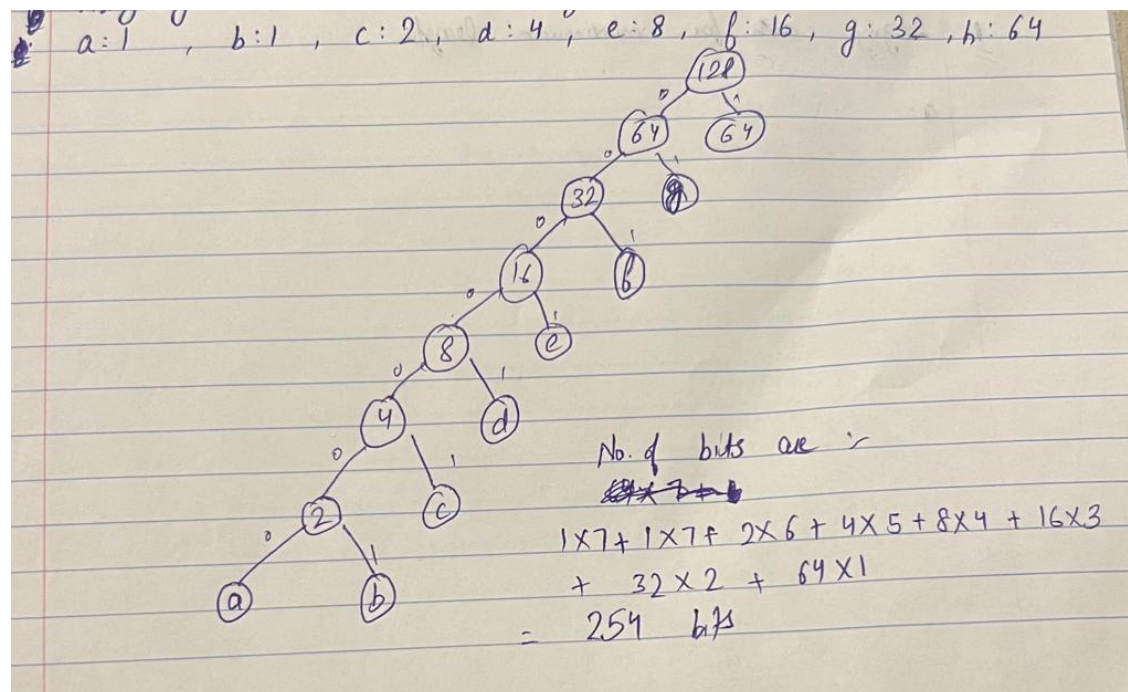 a:1 , b:1 , c:2, d:4, e:8, f:16, g:32, h:64
128
0 1
64 64
0 1
32 g
0 1
16 f
0 1
8 e
0 1
4 d
0 1
2 c
0 1
a b
No. of bits are :-
1X7+ 1X7+ 2X6+ 4X5+8X4 + 16X3
+ 32X2 + 64X1
= 254 bits